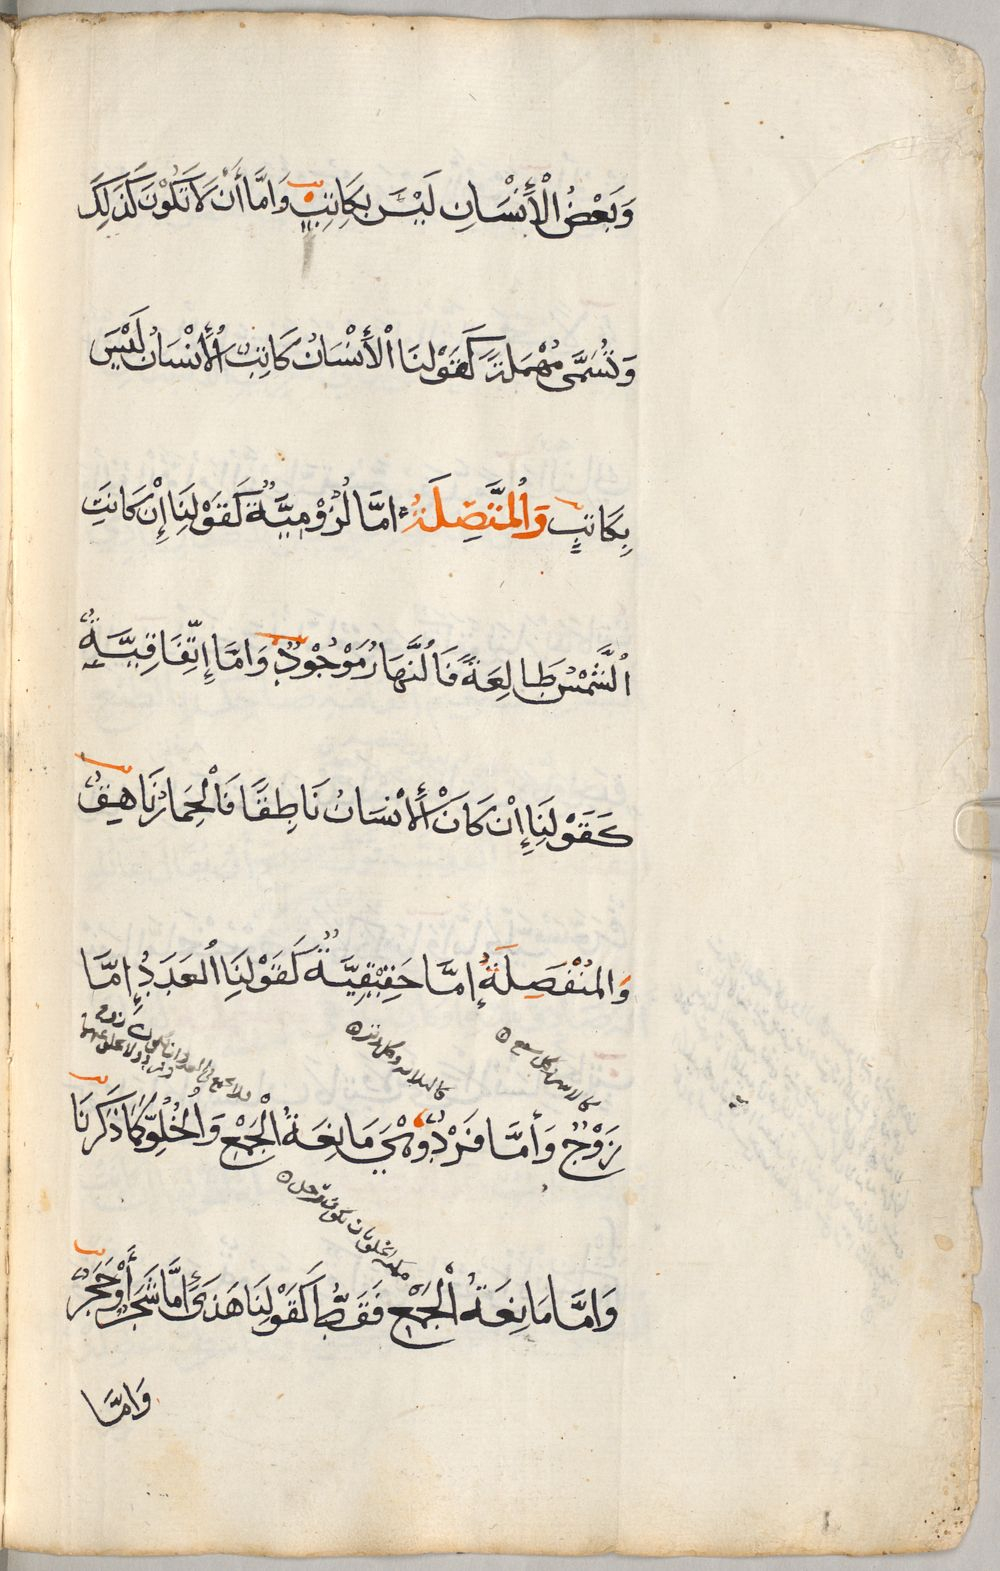 وَبَعْضُ الْأَنْسَانِ لَيْسَ بِكَاتِبٍ وَامَّا أَنْ لَا تَكُوْنَ كَذَلِكَ
وَتُسَمَّى مُهْمَلَةً كَقَوْلِنَا الْأَنْسَانُ كَاتِبٌ اَلْأَنْسَانُ لَيْسَ
بِكَاتِبٍ وَالْمُتَّصِلَةُ امَّا لُزُوْمِيَّةٌ كَقَوْلِنَا إِنْ كَانَتِ
الشَّمْسُ طَالِعَةً فَالنَّهَارُ مَوْجُوْدٌ وَامَّا إِتِّفَاقِيَّةٌ
كَقَوْلِنَا إِنْ كَانَ الْأَنْسَانُ نَاطِقًا فَالْحِمَارُ نَاهِقٌ
وَالمُنْفَصِلَةُ إِمَّا حَقِيْقِيَّةٌ كَقَوْلِنَا الْعَدَدُ إِمَّا
زَوْجٌ وَأمَّا فَرْدٌ وَهْيَ مَانِعَةُ الْجَمْعِ وَالْخُلُوِّ كَمَا ذَكَرْنَا
وَامَّا مَانِعَةُ الْجَمْعِ فَقَطْ كَقَوْلِنَا هَذَا أَمَّا شَجَرٌ أَوْ حَجَرٌ
وَامَّا